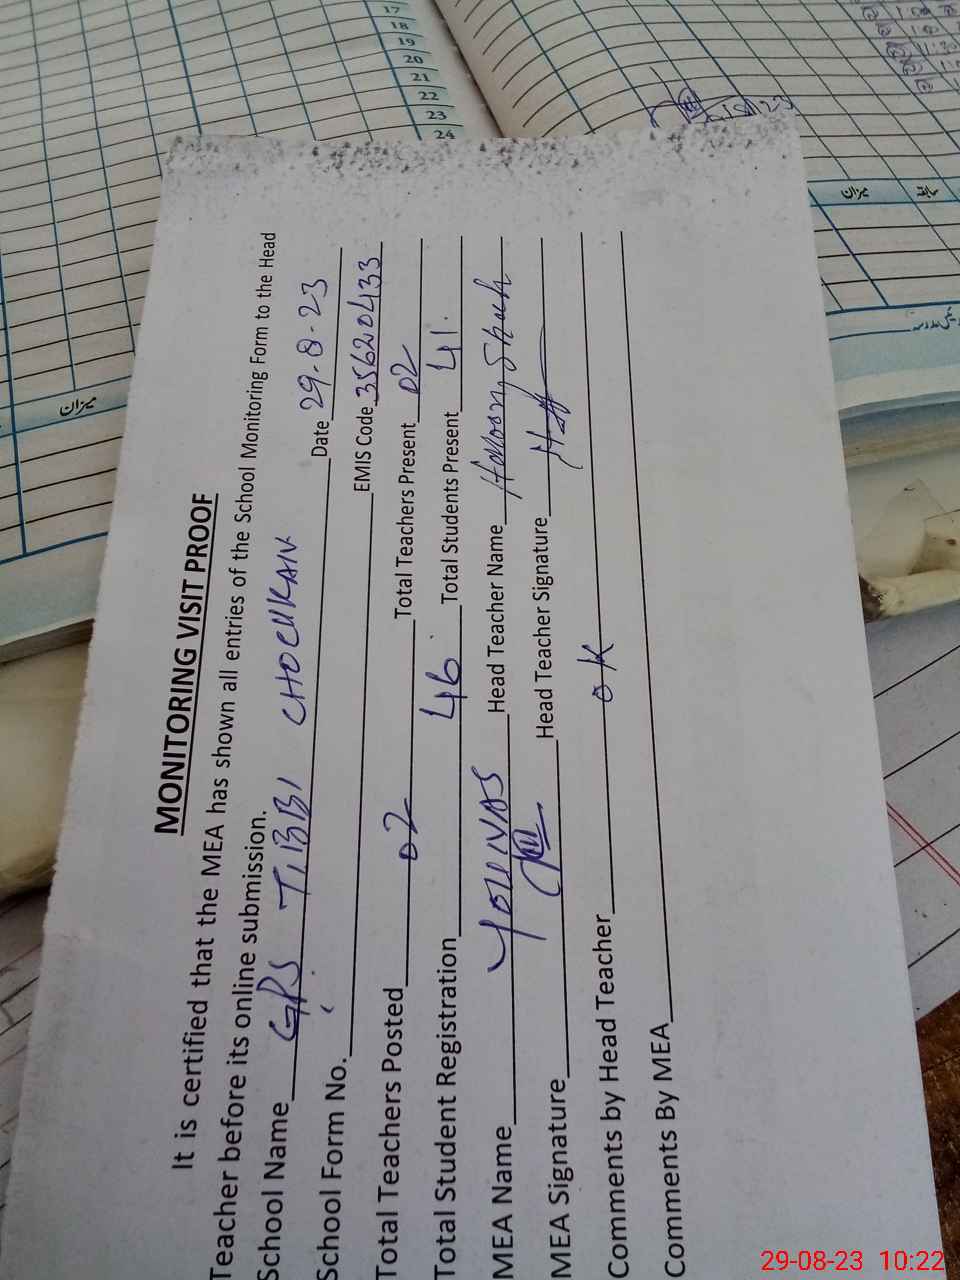 MONITORING VISIT PROOF
It is certified that the MEA has shown all entries of the School Monitoring Form to the Head
Teacher before its online submission.
School Name GPS TIBBI CHOEKKAN Date 29-8-23
School Form No. EMIS Code 35620433
Total Teachers Posted 02 Total Teachers Present 02
Total Student Registration 46 Total Students Present 41
MEA Name Head Teacher Name Shah
MEA Signature Head Teacher Signature
Comments by Head Teacher OK
Comments By MEA
17
18
19
20
21
22
23
24
میزان
میزان
29-08-23 10:22